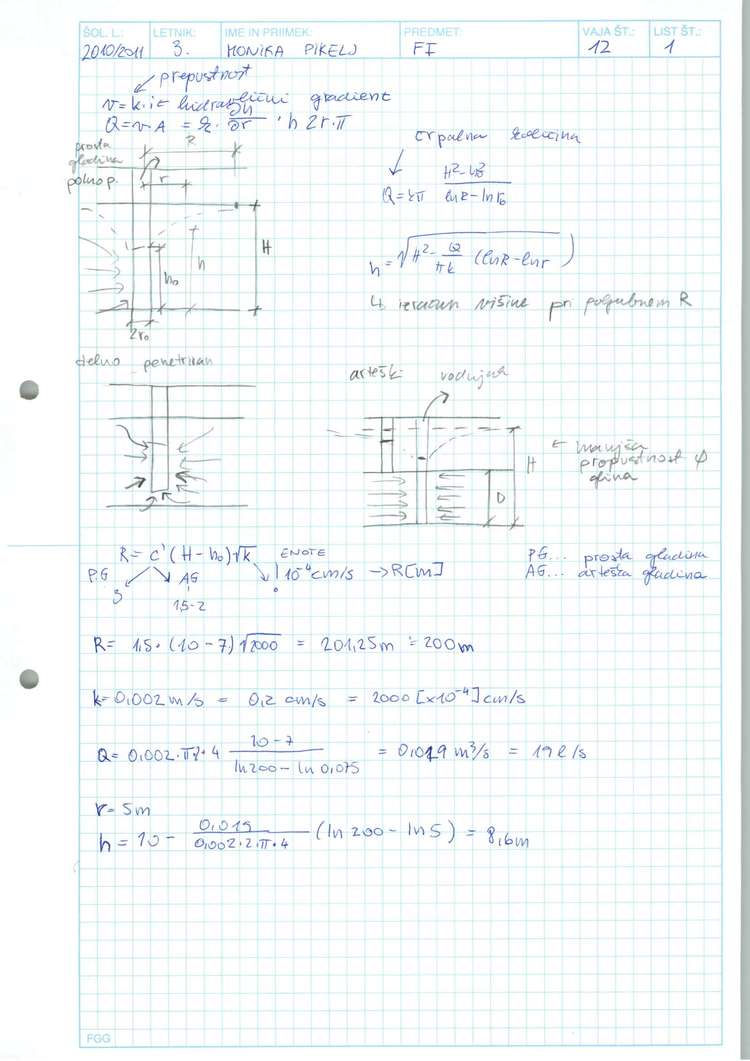 ŠOL. L.: LETNIK: IME IN PRIIMEK: PREDMET: VAJA ŠT.: LIST ŠT.:
2010/2011 3. MONIKA PIKELJ FI 12 1
prepustnost
v = k·i ← hidravlični gradient
Q = v·A = k · ∂h/∂r · h 2r·π
prosta gladina
polno p.
R
r
H
h
h₀
2r₀
črpalna količina
Q = kπ (H²-h₀²)/(lnR - lnr₀)
h = √(H² - Q/(πk) (lnR - lnr))
↳ izračun višine pri poljubnem R
delno penetriran
arteški vodnjak
H
D
← manjša
propustnost
glina
R = c'(H - h₀)√k ENOTE
P.G AG ! 10⁻⁴ cm/s → R[m]
3
1,5-2
PG... prosta gladina
AG... arteška gladina
R = 1,5·(10-7)√2000 = 201,25m ≐ 200m
k = 0,002 m/s = 0,2 cm/s = 2000 [×10⁻⁴] cm/s
Q = 0,002·π2·4 (10-7)/(ln200 - ln 0,075) = 0,019 m³/s = 19 l/s
r = 5m
h = 10 - 0,019/(0,002·2·π·4) (ln 200 - ln 5) = 8,6m
FGG